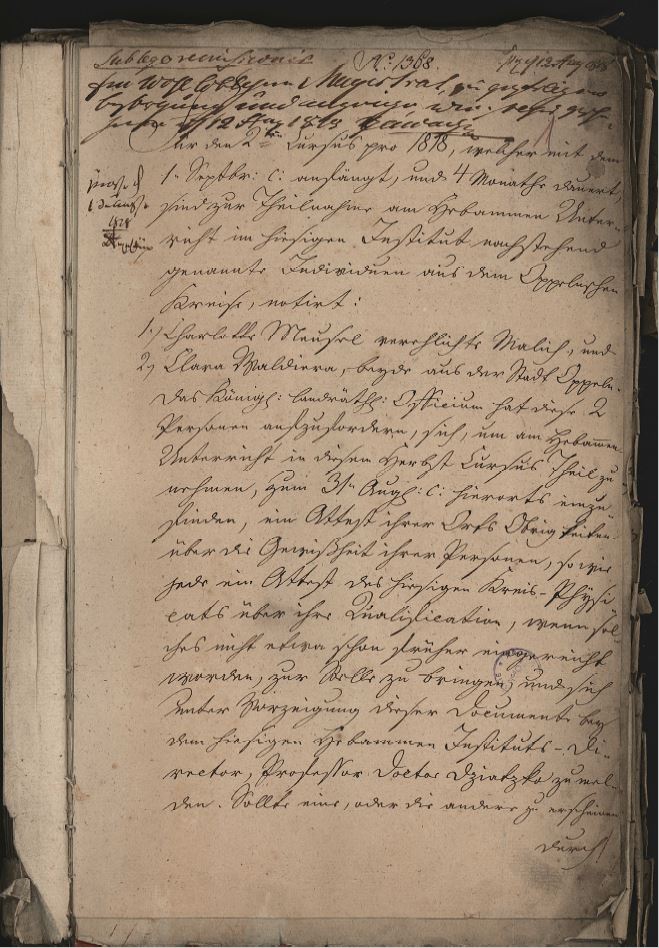 Sub lege remissionis No. 1368.
Ein Wohllöblicher Magistrat, zu gefälligen
und
12 Aug 1818
Für den 2ten Cursus pro 1818, welcher mit dem
1n Septbr: c: anfängt, und 4 Monathe dauert,
sind zur Theilnahme am Hebammen Unter-
richt im hiesigen Institut nachstehend
genannte Individuen aus dem Oppelnschen
Kreise, notirt:
1.) Charlotte Meusel verehlichte Malich, und
2.) Clara Waldiera, beyde aus der Stadt Oppeln.
Das Königl: landräthl: Officium hat diese 2
Personen aufzufordern, sich, um am Hebamen
Unterricht in diesem Herbst Cursus Theil zu
nehmen, zum 31n Augt: c: hierorts einzu
finden, ein Attest ihrer Orts Obrigkeiten
über die Gewißheit ihrer Personen, so wie
jede ein Attest des hiesigen Kreis-Physi
cats über ihre Qualification, wenn sol-
ches nicht etwa schon früher eingereicht
worden, zur Stelle zu bringen, und sich
unter Vorzeigung dieser Documente bey
dem hiesigen Hebammen Instituts-Di-
rector, Professor Doctor Dziatzko zu mel-
den. Sollte eine, oder die andere zu erscheinen
durch